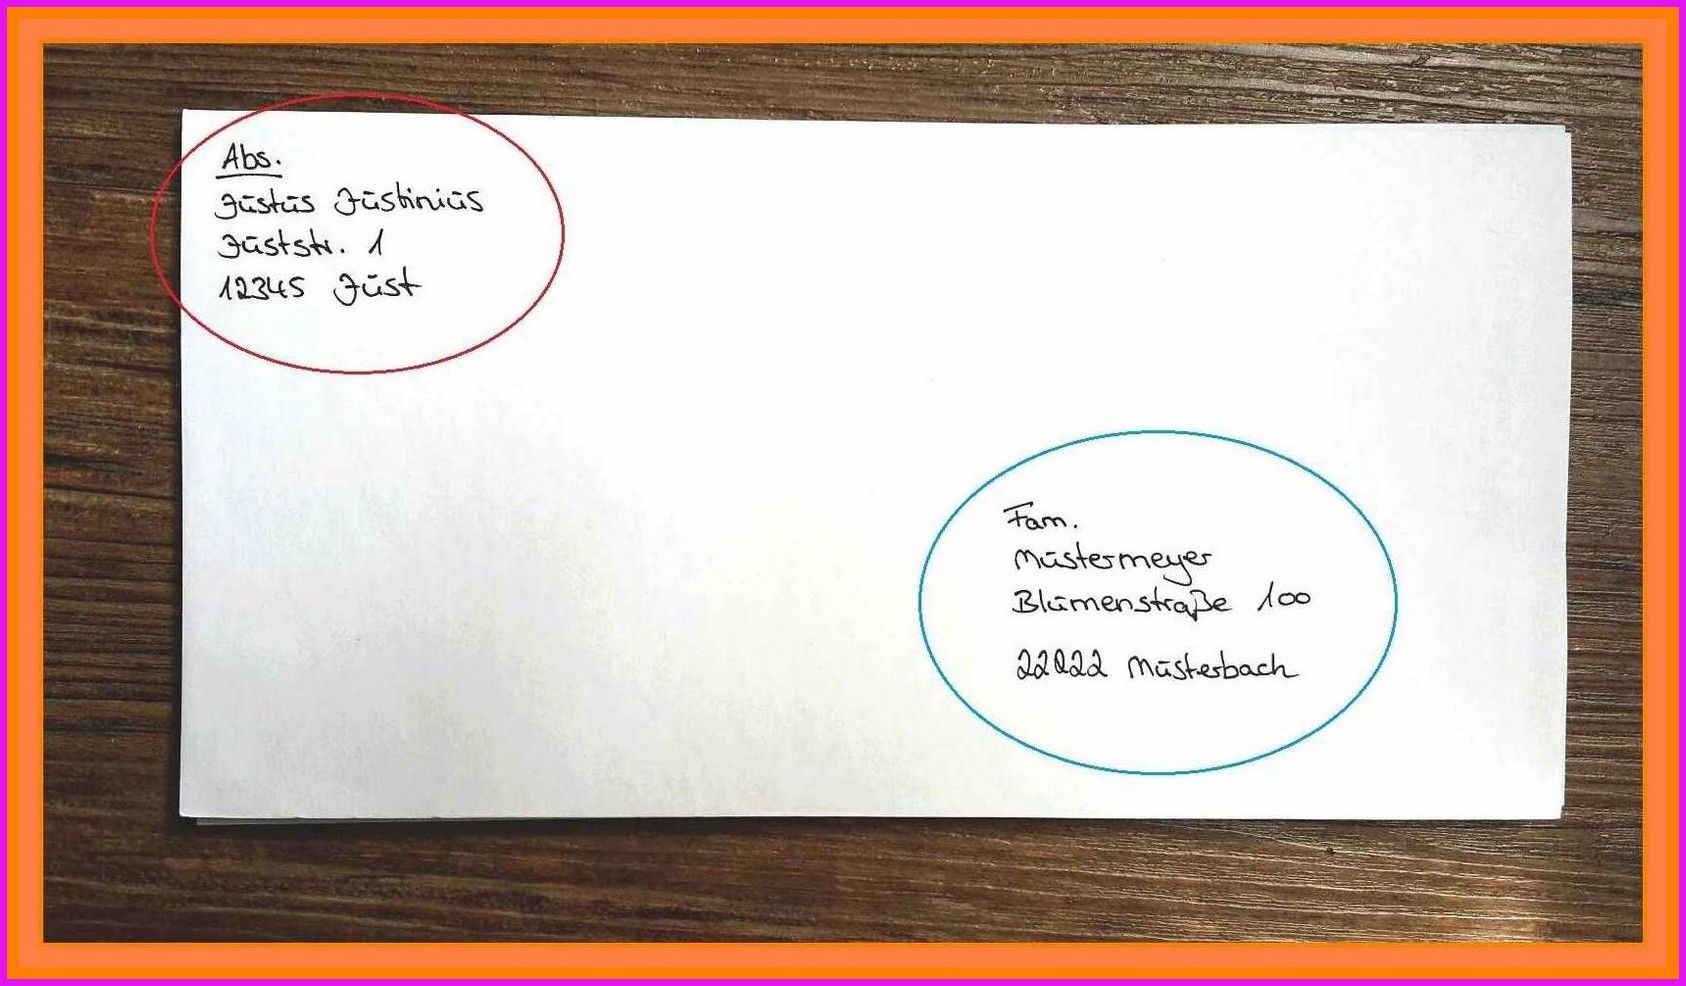 Abs.
Justus Justinius
Juststr. 1
12345 Just
Fam.
Mustermeyer
Blumenstraße 100
22222 Musterbach